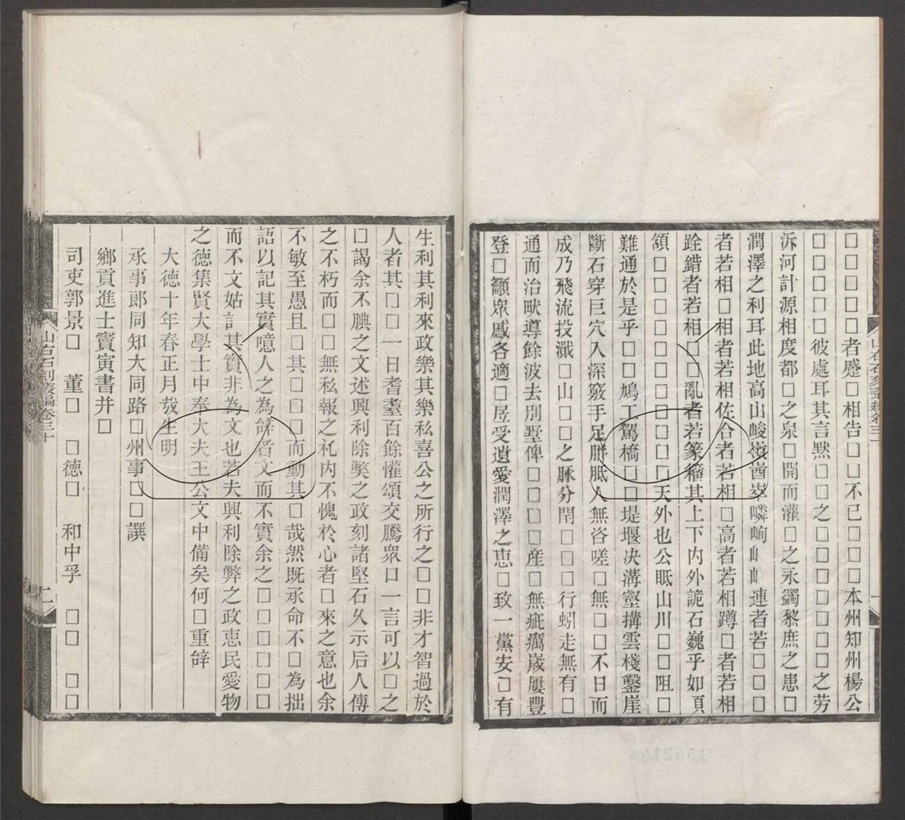 □□□□□者感□相告□□不已□□□本州知州楊公
□□□□□彼處耳其言黙□□之□□□□□□之劳
泝河計源相度都□之泉□開而灌□之永蠲黎庶之患□
潤澤之利耳此地高山峻嶺嶒崒嶙峋連者若□□□
者若相□相者若相佐合者若相□高者若相蹲□者若相
跧錯者若相□□亂者若篆籀其上下内外詭石巍乎如頁
領□□□□□□□□□天外也公眂山川□□阻□
難通於是乎□□鳩工駕橋□□堤堰决溝壑搆雲棧鑿崖
斷石穿巨穴入深竅手足胼胝人無咨嗟□無□□不日而
成乃飛流投瀸□山□□之脉分閈□□□行蚓走無有□
通而治畎導餘波去别墅俾□□□産□無疵癘嵗屢豐
登□籲眾感各適□居受遺愛潤澤之恵□致一黨安□有
生利其利來政樂其樂私喜公之所行之□□非才智過於
人者其□□一日耆耋百餘懽頌交騰衆口一言可以□之
□謁余不腆之文述興利除獘之政刻諸堅石乆示后人傳
之不朽而□□無私報之礼内不愧於心者□來之意也余
不敏至愚且□其□□□而動其□哉然既承命不□為拙
語以記其實噫人之為辭者文而不實余之□□□□□□
而不文姑記其實非為文也若夫興利除弊之政恵民愛物
之德集賢大學士中奉大夫王公文中備矣何□重辝
大德十年春正月哉生明
承事郎同知大同路□州事□□譔
鄉貢進士竇寅書并□
司吏郭景□　董□　□德□　和中孚　□□　□□
山右石刻叢編卷三十
二